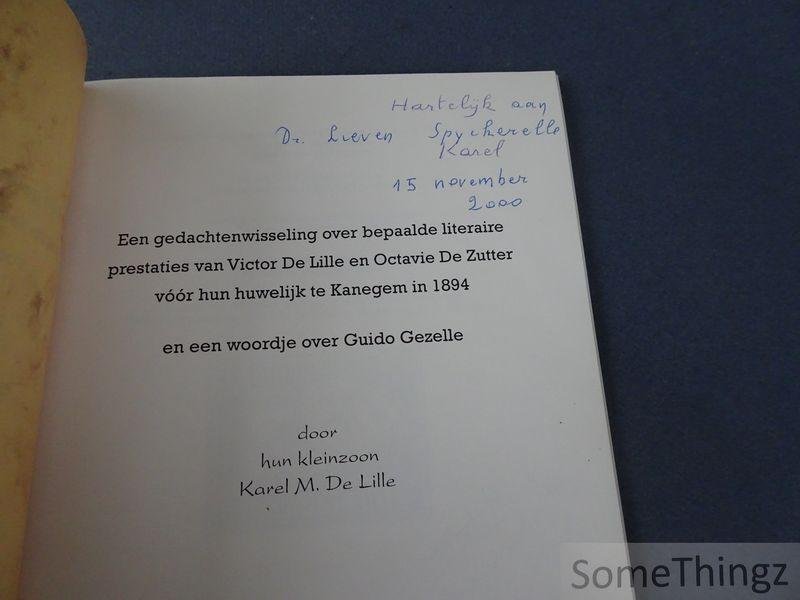 Hartelijk aan
Dr. Lieven Spyckerelle
Karel
15 november
2000
Een gedachtenwisseling over bepaalde literaire
prestaties van Victor De Lille en Octavie De Zutter
vóór hun huwelijk te Kanegem in 1894
en een woordje over Guido Gezelle
door
hun kleinzoon
Karel M. De Lille
SomeThingz